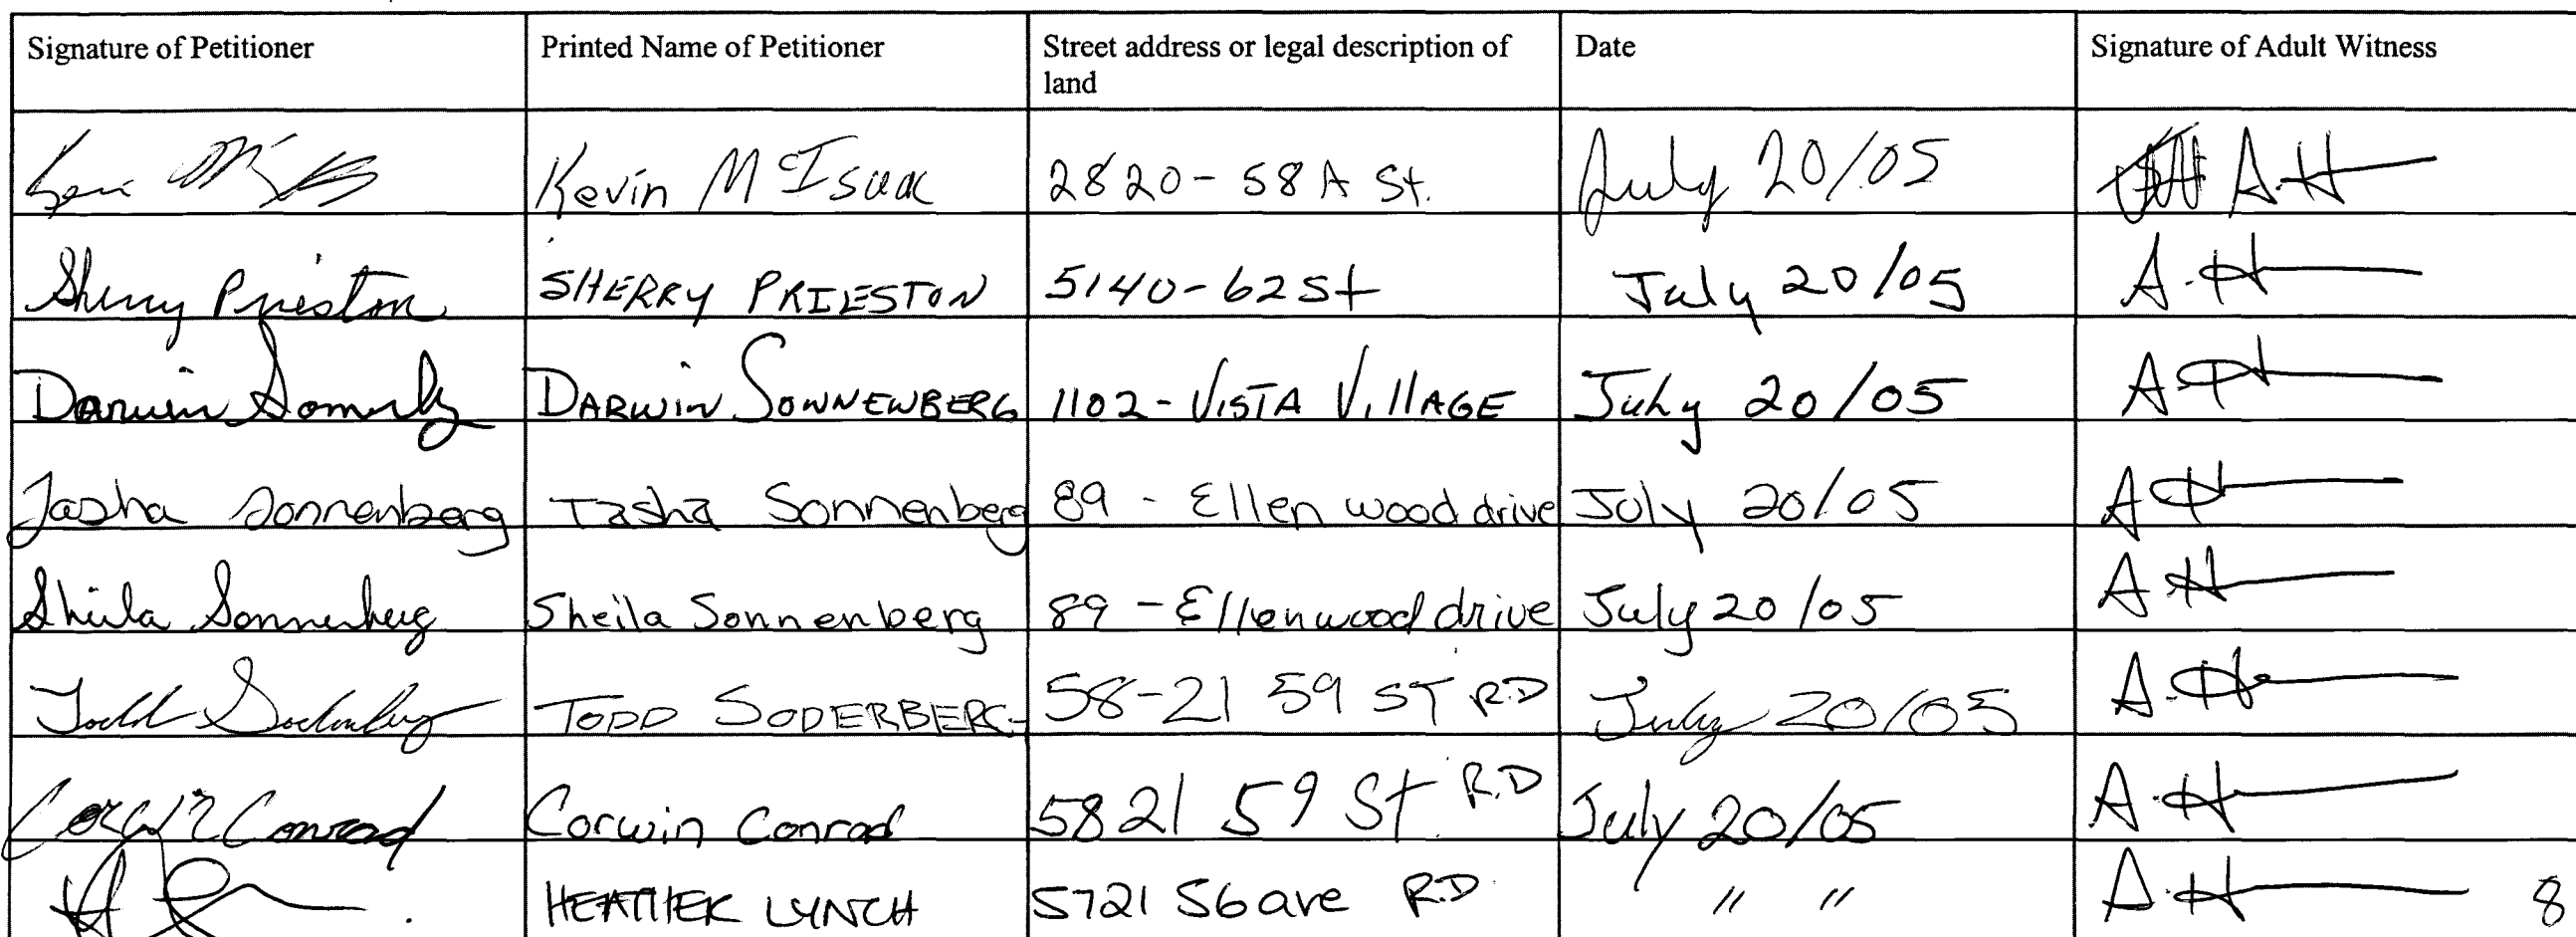 Signature of Petitioner Printed Name of Petitioner Street address or legal description of land Date Signature of Adult Witness
Kevin McIsaac 2820-58A St. July 20/05 A.H
Sherry Prieston SHERRY PRIESTON 5140-62 St July 20/05 A.H
Darwin DARWIN SONNEWBERG 1102-VISTA VILLAGE July 20/05 A H
Tasha Sonnenberg Tasha Sonnenberg 89 - Ellen wood drive July 20/05 A H
Sheila Sonnenberg Sheila Sonnenberg 89 - Ellenwood drive July 20/05 A H
Todd Soderberg TODD SODERBERG 58-21 59 ST RD July 20/05 A.H
Conrad Corwin Conrad 5821 59 St. R.D July 20/05 A.H
HEATHER LYNCH 5721 56 ave R.D. " " A.H 8